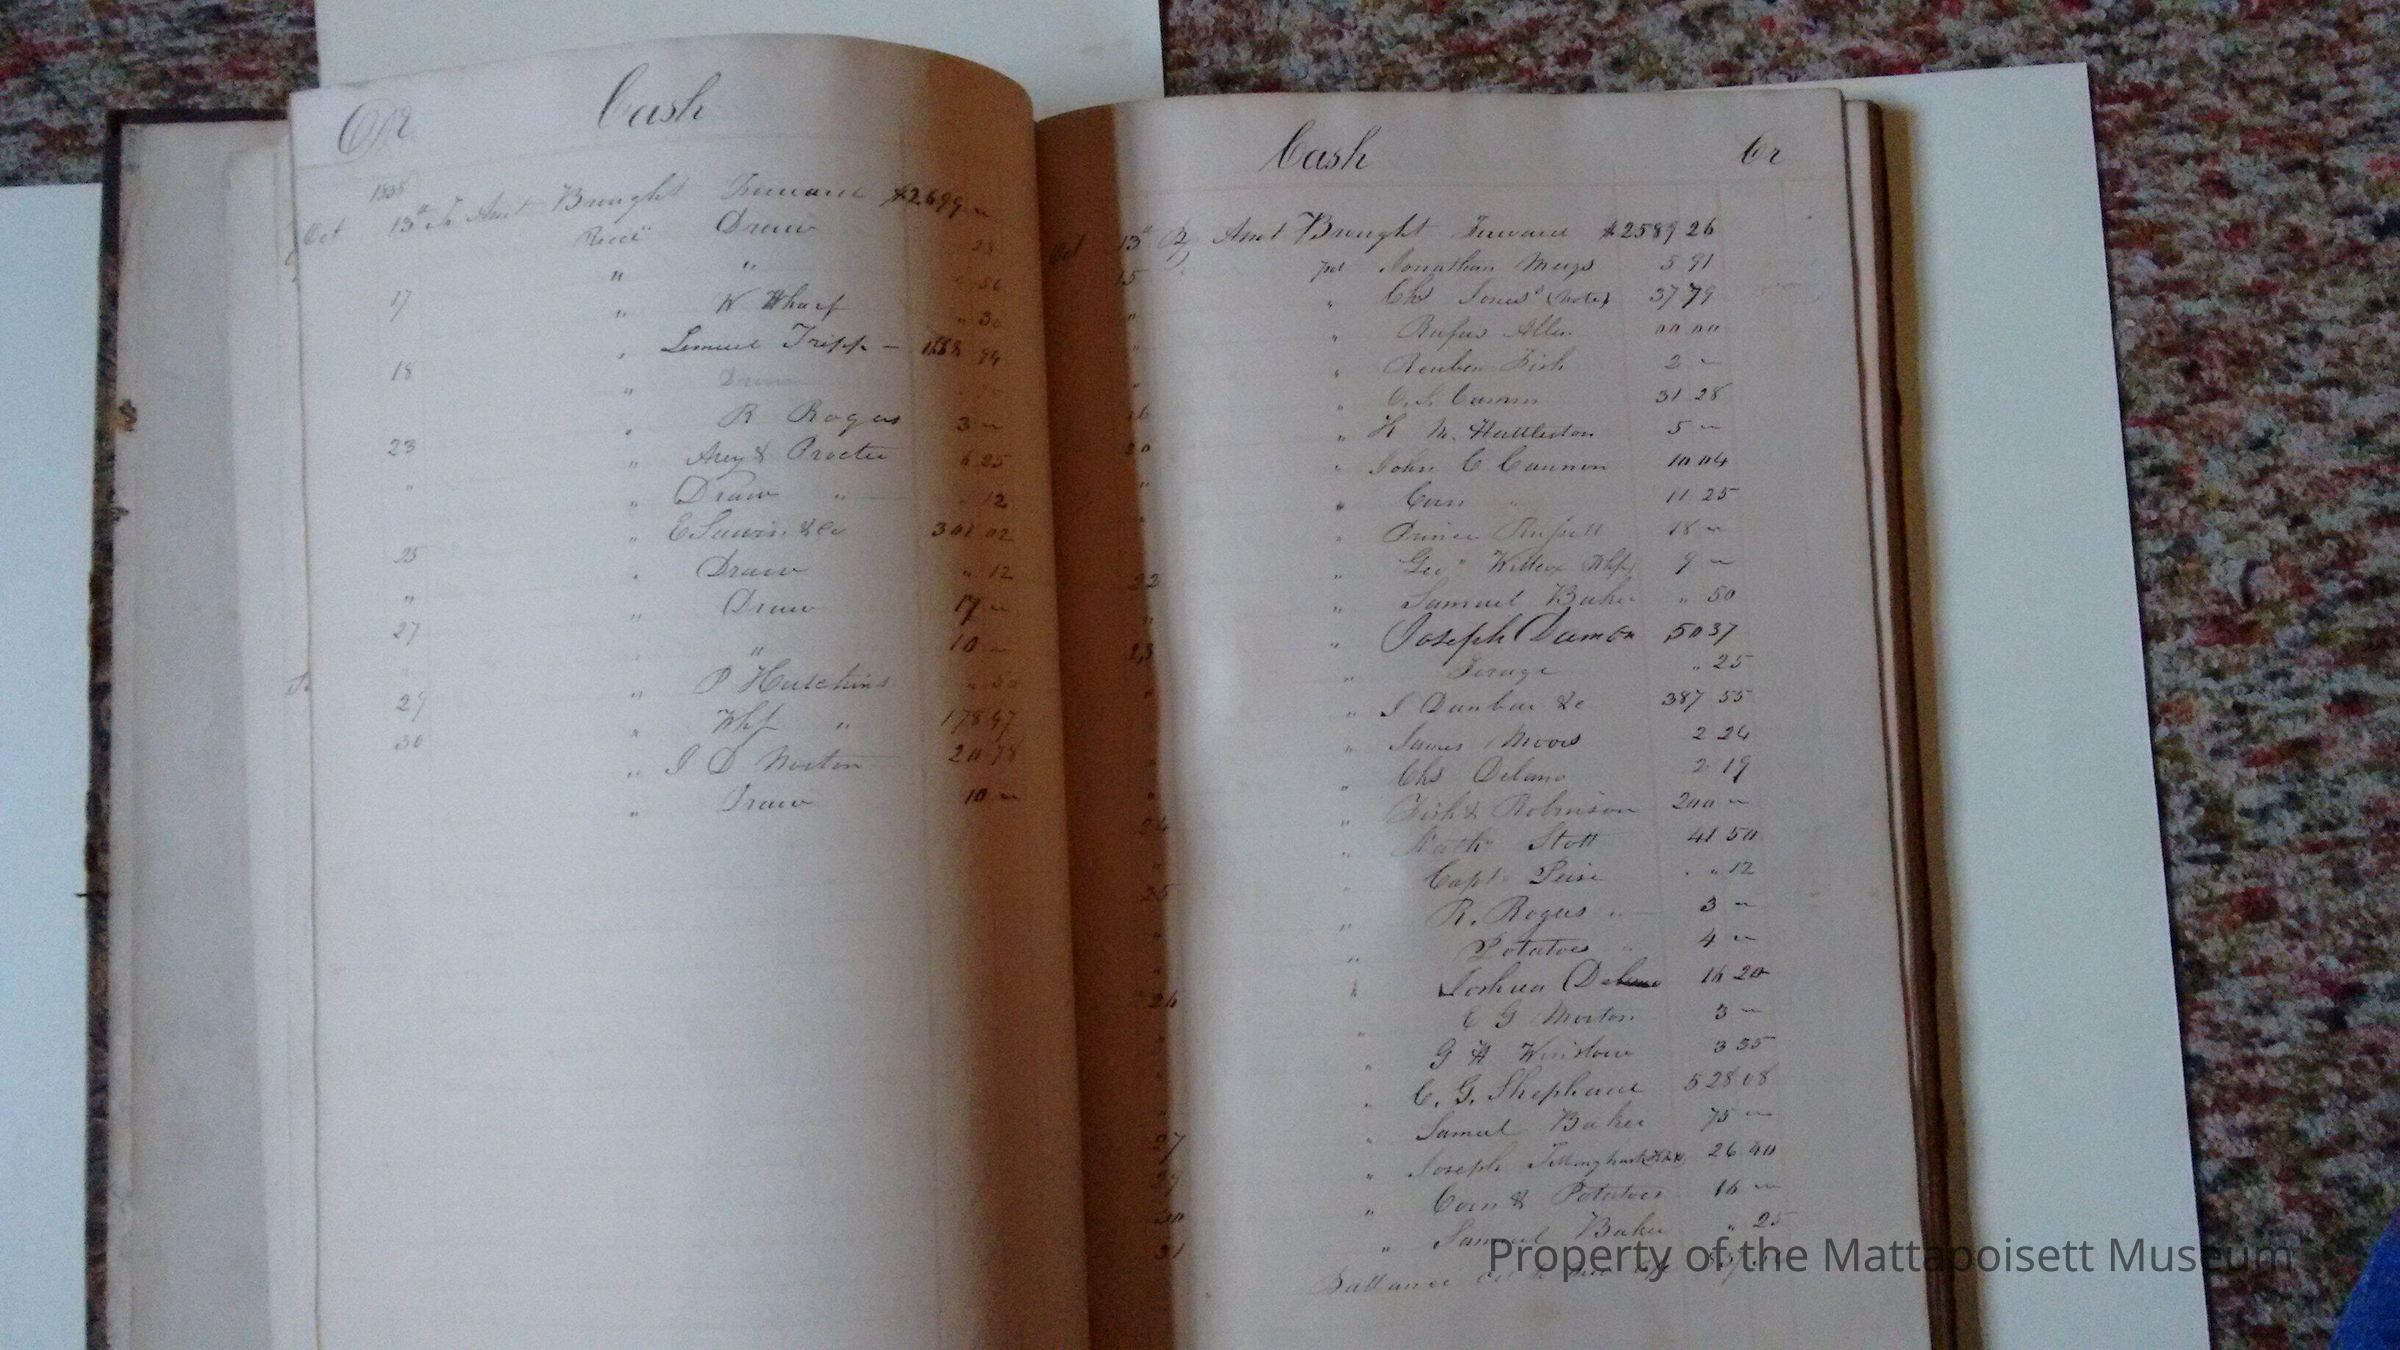 DR Cash
Oct 13th To Amt Brought Forward $2699 "
Recd Draw 23
" " " 50
17 " W Wharf " 30
" Lemuel Tripp — 94
18 " Draw
" R Rogers 3 "
23 " & Procter 6 25
" " Draw " " 12
" E Sawin & Co 301 02
25 " Draw " 12
" " Draw 17 "
27 " " 10 "
" P Hutchins " 50
29 " Whf " 178 97
30 " I D Norton 20 78
" Draw 10 "
Cash Cr
Oct 13th By Amt Brought Forward $2589 26
15 pd Jonathan Meigs 5 91
" " Chs Jones (Note) 37 79
" " Rufus Allen 00 00
" " Reuben Fish 2 "
16 " 31 28
20 " H M. Huttleston 5 "
" " John C Cannon 10 04
" " Corn " 11 25
" Prince Russell 18 "
22 " Geo Wilcox (Whf) 9 "
" " Samuel Baker " 50
23 " Joseph Damon 50 37
" " Ferage " 25
" I Dunbar & c 387 55
" " James Moors 2 24
" " Chs Delano 2 19
24 " Fish & Robinson 200 "
" " Nath Stott 41 50
25 " Capt " 12
" " R. Rogers " 3 "
" " Potatoes " 4 "
26 " Joshua Delano 16 20
" C G Morton 3 "
" G H Winslow 3 35
" C. G. Shephard 528 08
27 " Samuel Baker 75 "
29 " Joseph Tillinghast 26 40
30 " Corn & Potatoes 16 "
31 " Samuel Baker " 25
Ballance
Property of the Mattapoisett Museum